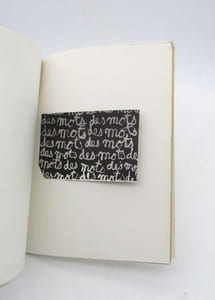 des mots des mots
des mots des mots
des mots des mots
mots des mots
des mots des mots
des mots des mots